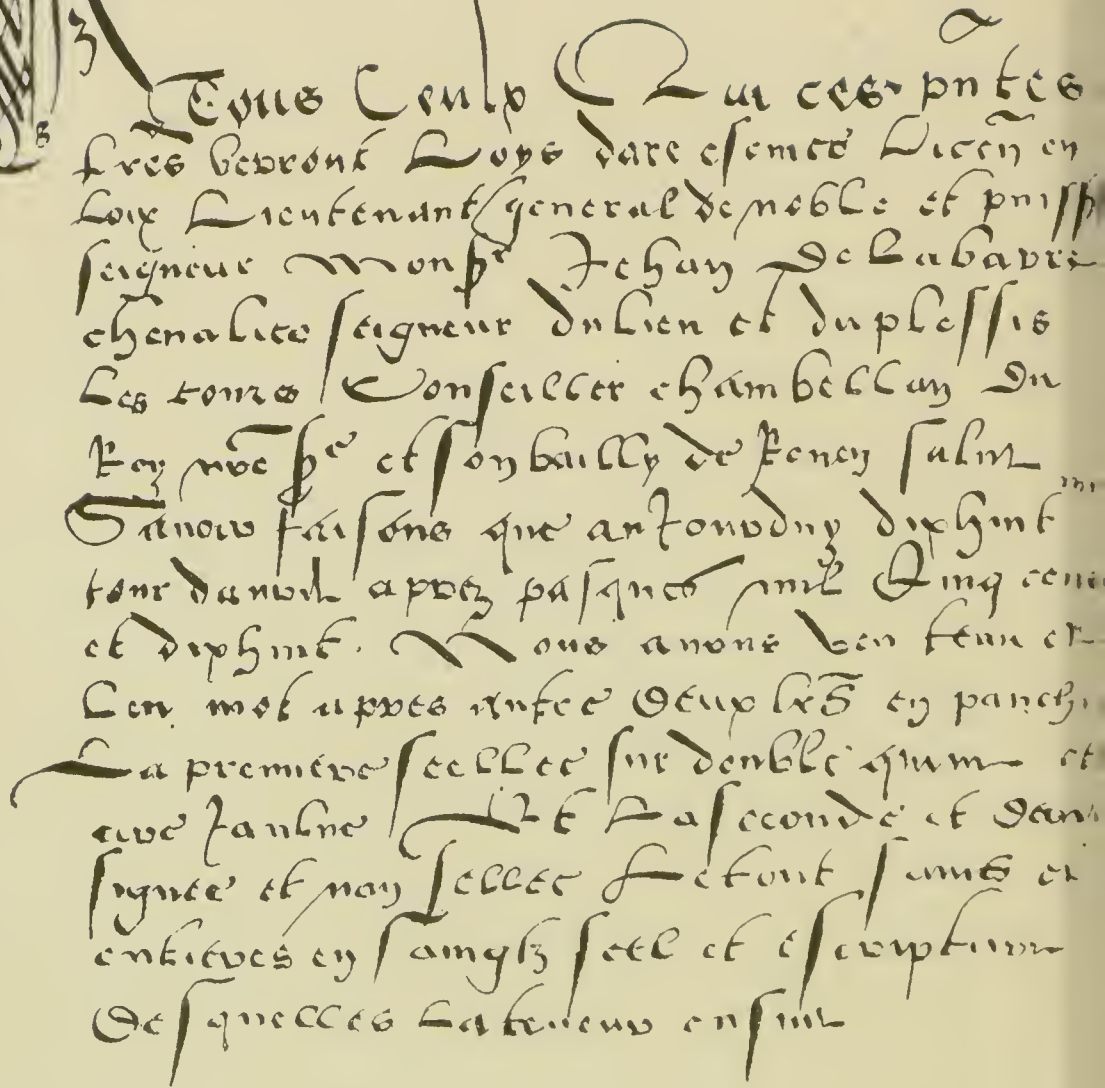 Tous Ceulx Qui ces pntes
lres verront Loys dare escuier Licen en
Loix Lieutenant general de noble et puiss
seigneur Monsr Jehan De Labarre
chevalier seigneur du lieu et du plessis
Les tours Conseiller chambellan Du
Roy nre sre et son bailly de Rouen salut
Savoir faisons que au Jourduy dixhuit
jour davril aprez pasques mil Cinq cen
et dixhuit. Nous avons veu tenu et
Leu mot apres autre Deux lres en parch
La premiere seellee sur double queue et
cire Jaulne Et La seconde et der
signee et non sellee Le tout saines et
entieres en saingz seel et escripture
Desquelles La teneur ensuit